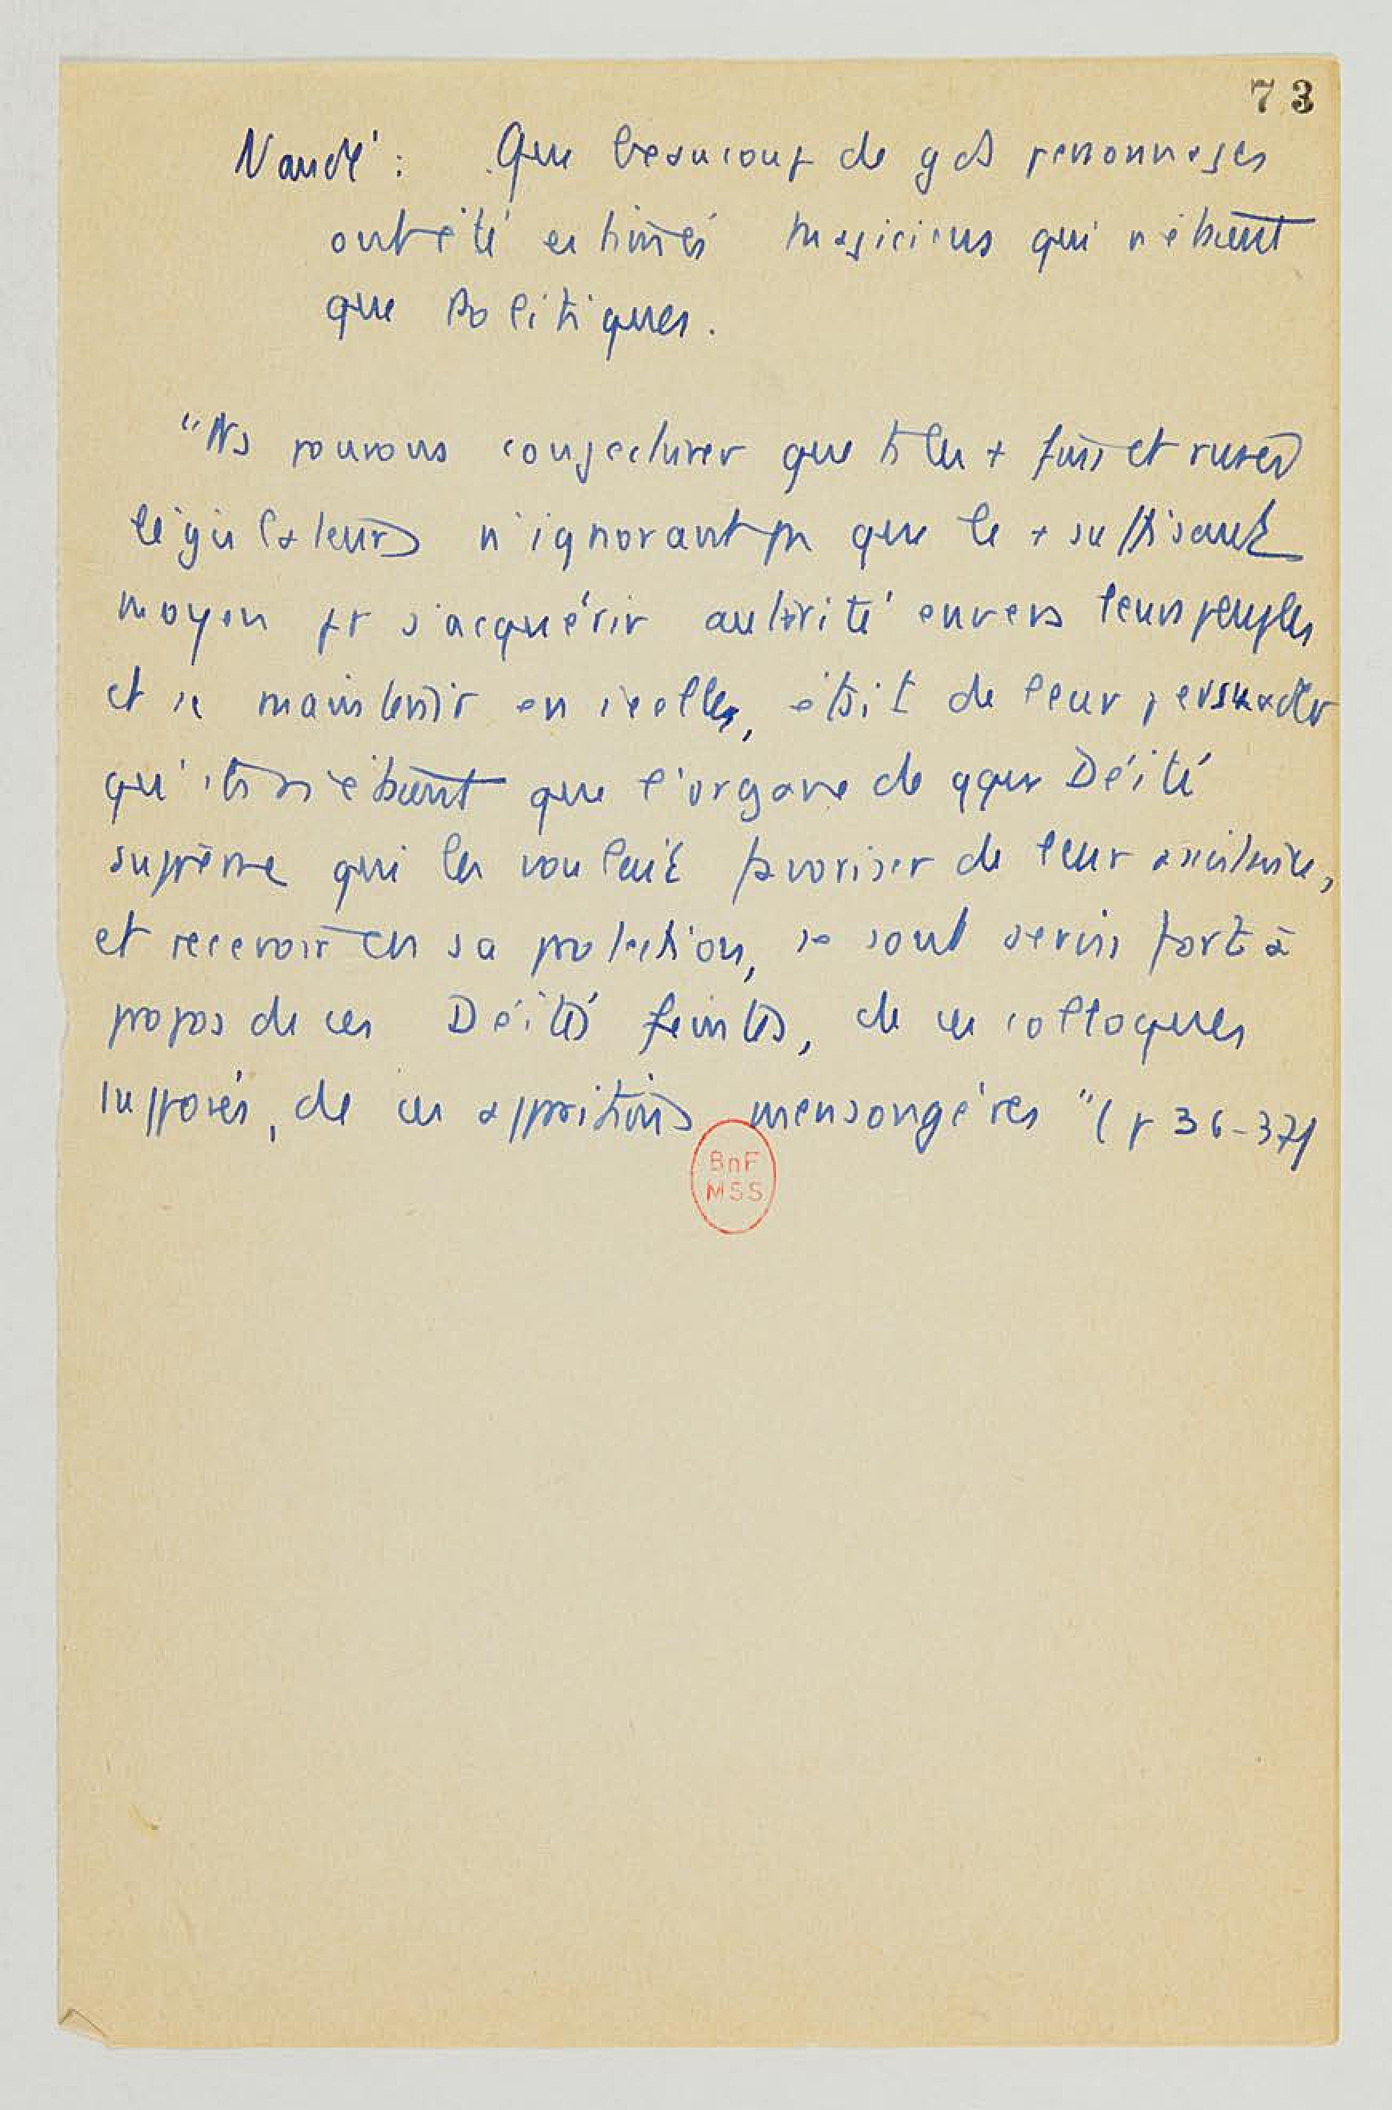 73
Naudé : Que beaucoup de gds personnages
ont été estimés Magiciens qui n'étaient
que Politiques.
"Ns pouvons conjecturer que ts les + fins et rusés
législateurs n'ignorant pas que le + suffisant
moyen pr s'acquérir autorité envers leurs peuples
et se maintenir en icelles, était de leur persuader
qu'ils n'étaient que l'organe de qque Déité
suprême qui les voulait favoriser de leur assistance,
et recevoir en sa protection, se sont servis fort à
propos de ces Déités feintes, de ces colloques
supposés, de ces apparitions mensongères" (p 36-37)
BnF
MSS